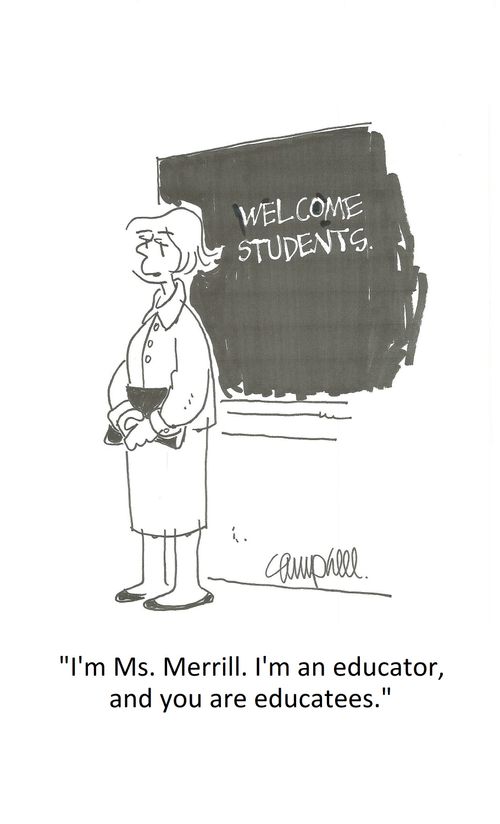 WELCOME
STUDENTS.
Campbell.
"I'm Ms. Merrill. I'm an educator,
and you are educatees."